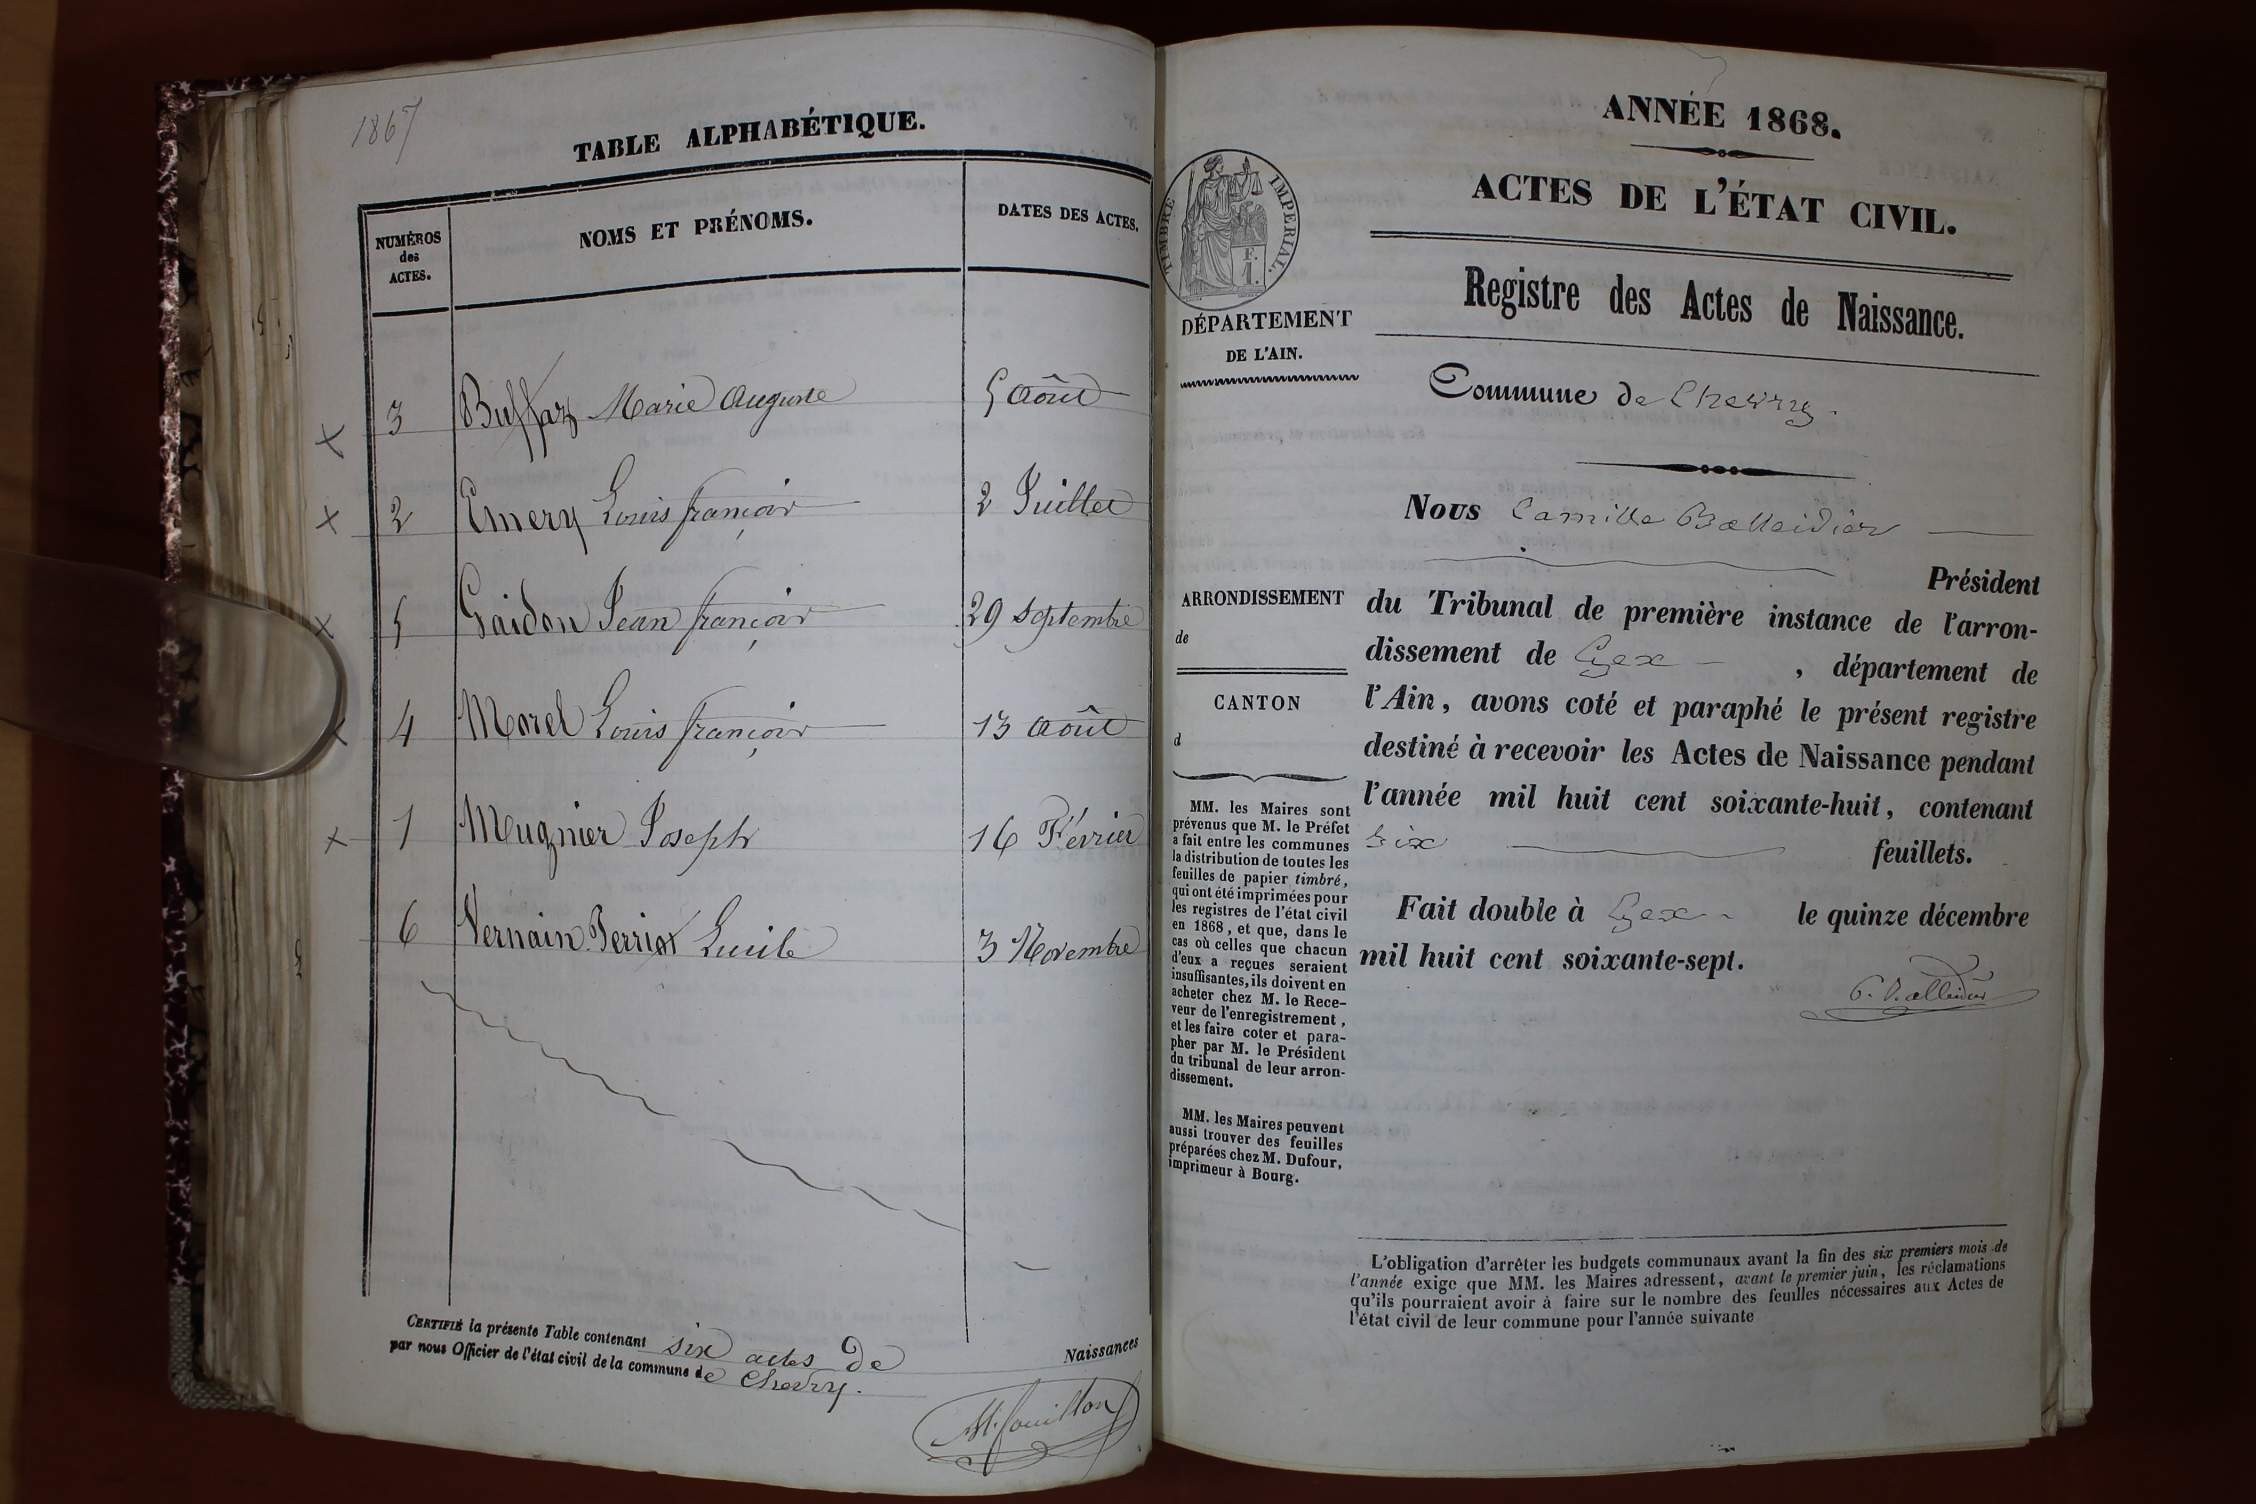 1867
TABLE ALPHABÉTIQUE.
NUMÉROS
des
ACTES.
NOMS ET PRÉNOMS.
DATES DES ACTES.
3 Buffaz Marie Auguste 5 Août
2 Emery Louis françois 2 Juillet
5 Gaidon Jean françois 29 septembre
4 Morel Louis françois 13 Août
1 Mugnier Joseph 16 Février
6 Vernain Perriat Lucile 3 Novembre
CERTIFIÉ la présente Table contenant six actes de Naissances
par nous Officier de l'état civil de la commune de Chevry.
ANNÉE 1868.
ACTES DE L'ÉTAT CIVIL.
TIMBRE IMPERIAL.
F.
1.
Registre des Actes de Naissance.
DÉPARTEMENT
DE L'AIN.
Commune de Chevry.
Nous Camille Balleidier
Président
du Tribunal de première instance de l'arron-
dissement de Gex, département de
l'Ain, avons coté et paraphé le présent registre
destiné à recevoir les Actes de Naissance pendant
l'année mil huit cent soixante-huit, contenant
six feuillets.
Fait double à Gex le quinze décembre
mil huit cent soixante-sept.
C. Balleidier
ARRONDISSEMENT
de
CANTON
d
MM. les Maires sont
prévenus que M. le Préfet
a fait entre les communes
la distribution de toutes les
feuilles de papier timbré,
qui ont été imprimées pour
les registres de l'état civil
en 1868, et que, dans le
cas où celles que chacun
d'eux a reçues seraient
insuffisantes, ils doivent en
acheter chez M. le Rece-
veur de l'enregistrement,
et les faire coter et para-
pher par M. le Président
du tribunal de leur arron-
dissement.
MM. les Maires peuvent
aussi trouver des feuilles
préparées chez M. Dufour,
imprimeur à Bourg.
L'obligation d'arrêter les budgets communaux avant la fin des six premiers mois de
l'année exige que MM. les Maires adressent, avant le premier juin, les réclamations
qu'ils pourraient avoir à faire sur le nombre des feuilles nécessaires aux Actes de
l'état civil de leur commune pour l'année suivante